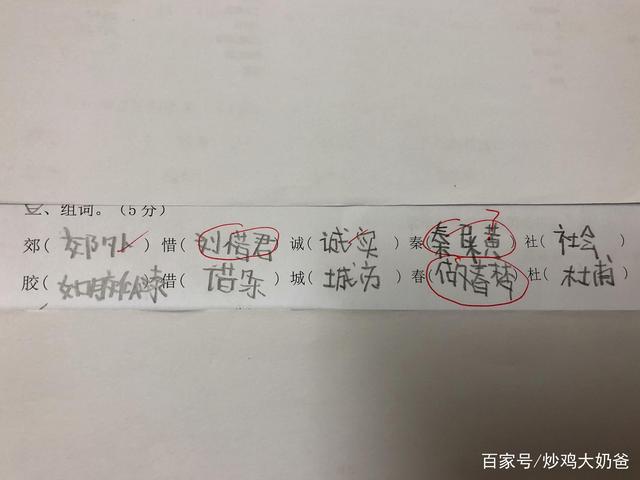 组词。(5分)
郊(郊外) 惜(刘惜君) 诚(诚实) 秦(秦) 社(社会)
胶(如胶似漆 借(借条) 城(城市) 春(做春梦) 杜(杜甫)
百家号/炒鸡大奶爸